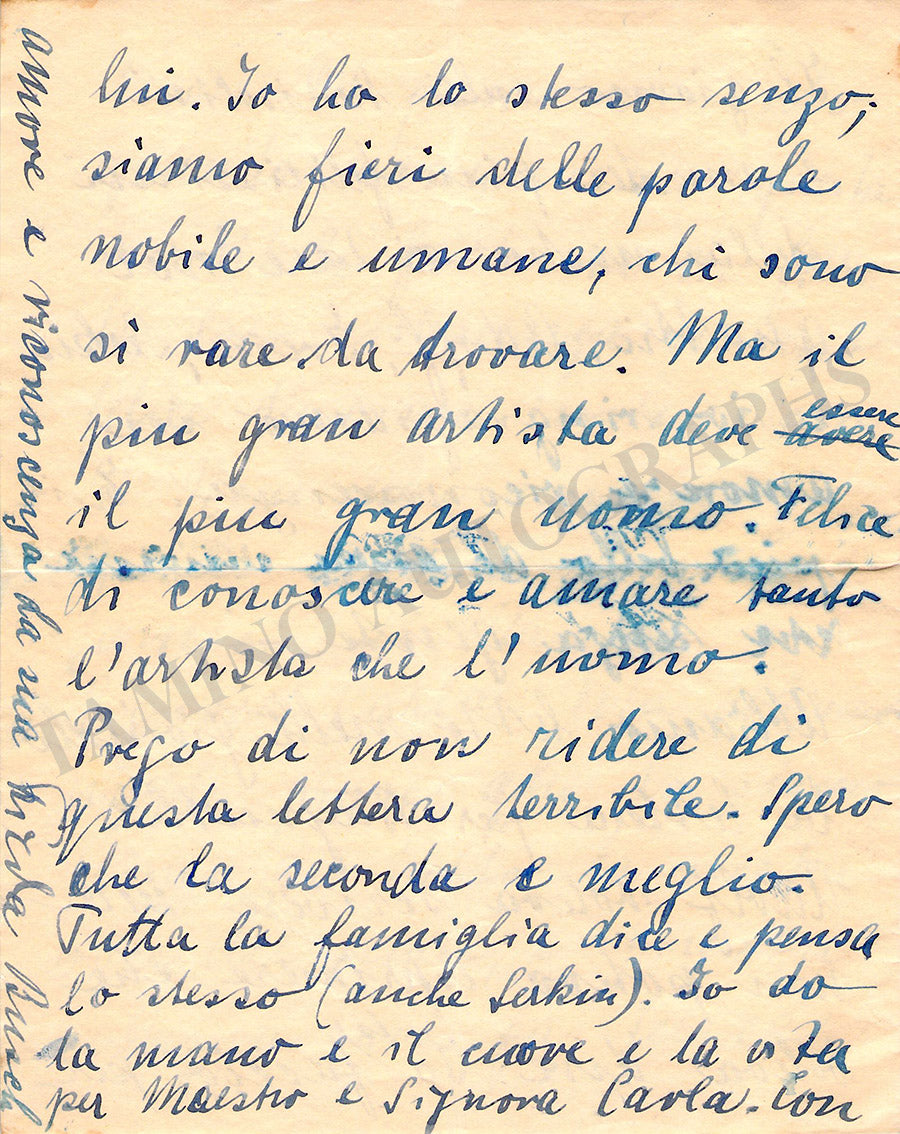 lui. Io ho lo stesso senzo;
siamo fieri delle parole
nobile e umane, chi sono
sì rare da trovare. Ma il
piu gran artista deve avere essere
il piu gran uomo. Felice
di conoscere e amare tanto
l'artista che l'uomo.
Prego di non ridere di
questa lettera terribile. Spero
che la seconda e meglio.
Tutta la famiglia dice e pensa
lo stesso (anche Serkin). Io do
la mano e il cuore e la vita
per Maestro e Signora Carla. Con
amore e riconoscenza da sua Frida Busch
TAMINO AUTOGRAPHS